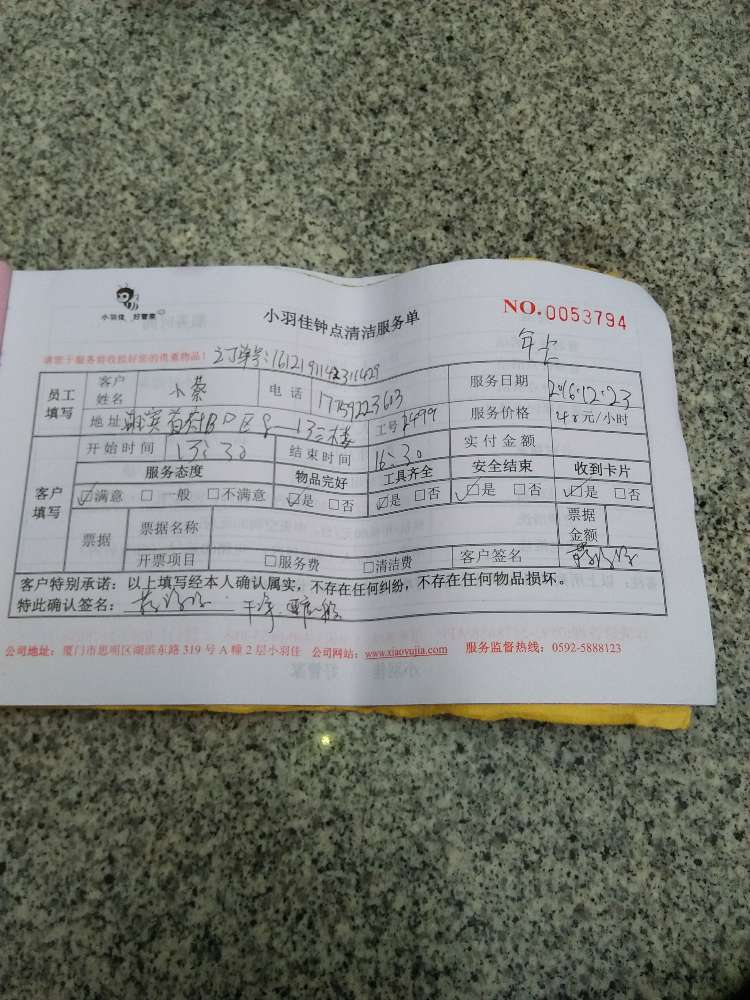 小羽佳 好管家
小羽佳钟点清洁服务单
NO.0053794
年卡
请您于服务前收捡好您的贵重物品!
订单号:
员工填写
客户姓名 小蔡 电话 17759223613 服务日期 2016.12.23
地址 工号 2499 服务价格 元/小时
开始时间 13:30 结束时间 16:30 实付金额
客户填写
服务态度 物品完好 工具齐全 安全结束 收到卡片
☑满意 □一般 □不满意 ☑是 □否 ☑是 □否 ☑是 □否 ☑是 □否
票据 票据名称 票据金额
开票项目 □服务费 □清洁费 客户签名
客户特别承诺:以上填写经本人确认属实,不存在任何纠纷,不存在任何物品损坏。
特此确认签名:
公司地址:厦门市思明区湖滨东路 319 号 A 幢 2 层小羽佳 公司网站:www.xiaoyujia.com 服务监督热线:0592-5888123